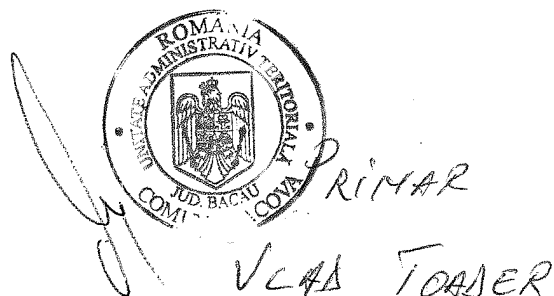 ROMÂNIA
UNITATE ADMINISTRATIV TERITORIALA
JUD. BACAU
PRIMAR
VLAD TOADER